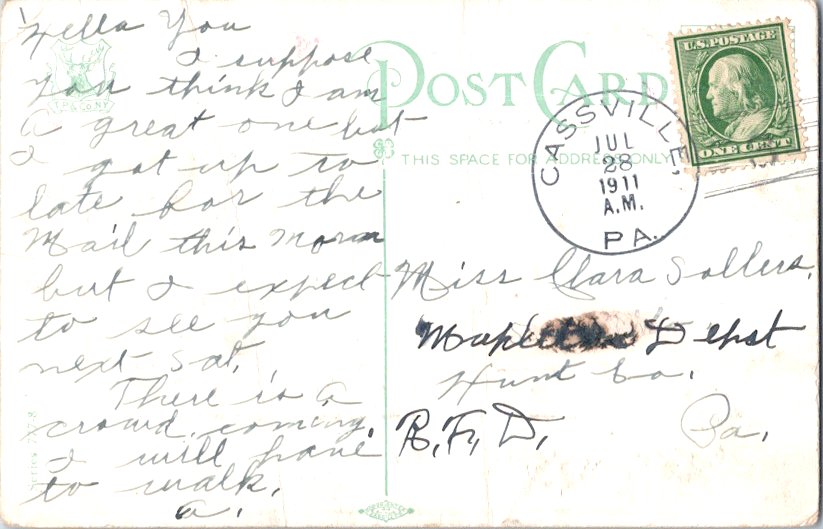 Hella You
I suppose
You think I am
a great one but
I got up to
late for the
Mail this Morn
but I expect
to see you
next Sat.
There is a
crowd coming.
I will have
to walk.
a.
T.P.&CO.N.Y.
POST CARD
THIS SPACE FOR ADDRESS ONLY
U.S. POSTAGE
ONE CENT
CASSVILLE,
JUL
28
1911
A.M.
PA.
Miss Clara Sollers,
Depot
Hunt Co.
R.F.D. Pa.